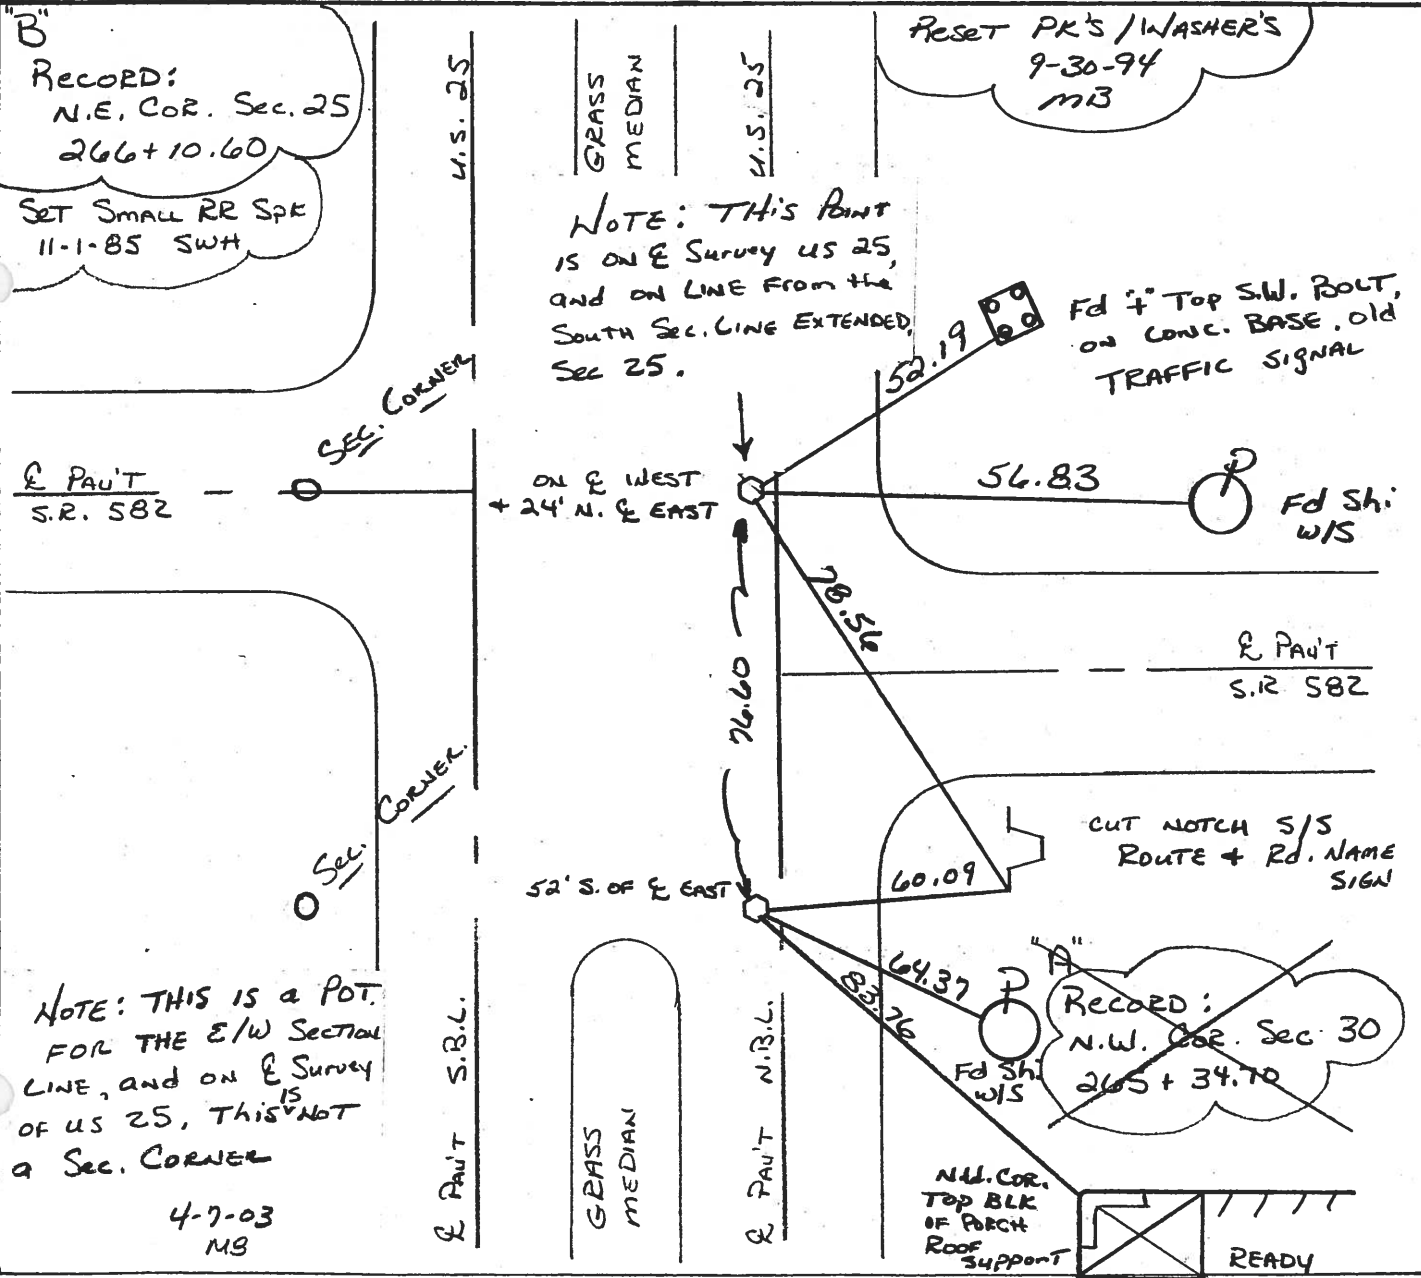 "B"
RECORD:
N.E. COR. Sec. 25
266+10.60
SET SMALL RR SPK
11-1-85 SWH
U.S. 25
GRASS
MEDIAN
U.S. 25
RESET PK'S/WASHER'S
9-30-94
MB
NOTE: THIS POINT
IS ON ℄ Survey US 25,
and ON LINE From the
SOUTH Sec. LINE EXTENDED,
Sec 25.
52.19
Fd "+" TOP S.W. BOLT,
ON CONC. BASE, old
TRAFFIC SIGNAL
SEC. CORNER
℄ PAV'T
S.R. 582
ON ℄ WEST
+ 24' N. ℄ EAST
56.83
Fd Sh.
W/S
78.56
76.60
℄ PAV'T
S.R 582
Sec. CORNER.
52' S. OF ℄ EAST
60.09
CUT NOTCH S/S
ROUTE + Rd. NAME
SIGN
64.37
83.76
Fd Sh.
W/S
"A"
RECORD:
N.W. COR. Sec 30
265 + 34.70
NOTE: THIS IS a POT.
FOR THE E/W SECTION
LINE, and ON ℄ Survey
OF US 25, THIS IS NOT
a Sec. CORNER
4-7-03
MB
℄ PAV'T S.B.L.
GRASS
MEDIAN
℄ PAV'T N.B.L.
N.W. COR.
TOP BLK
OF PORCH
ROOF
SUPPORT
READY